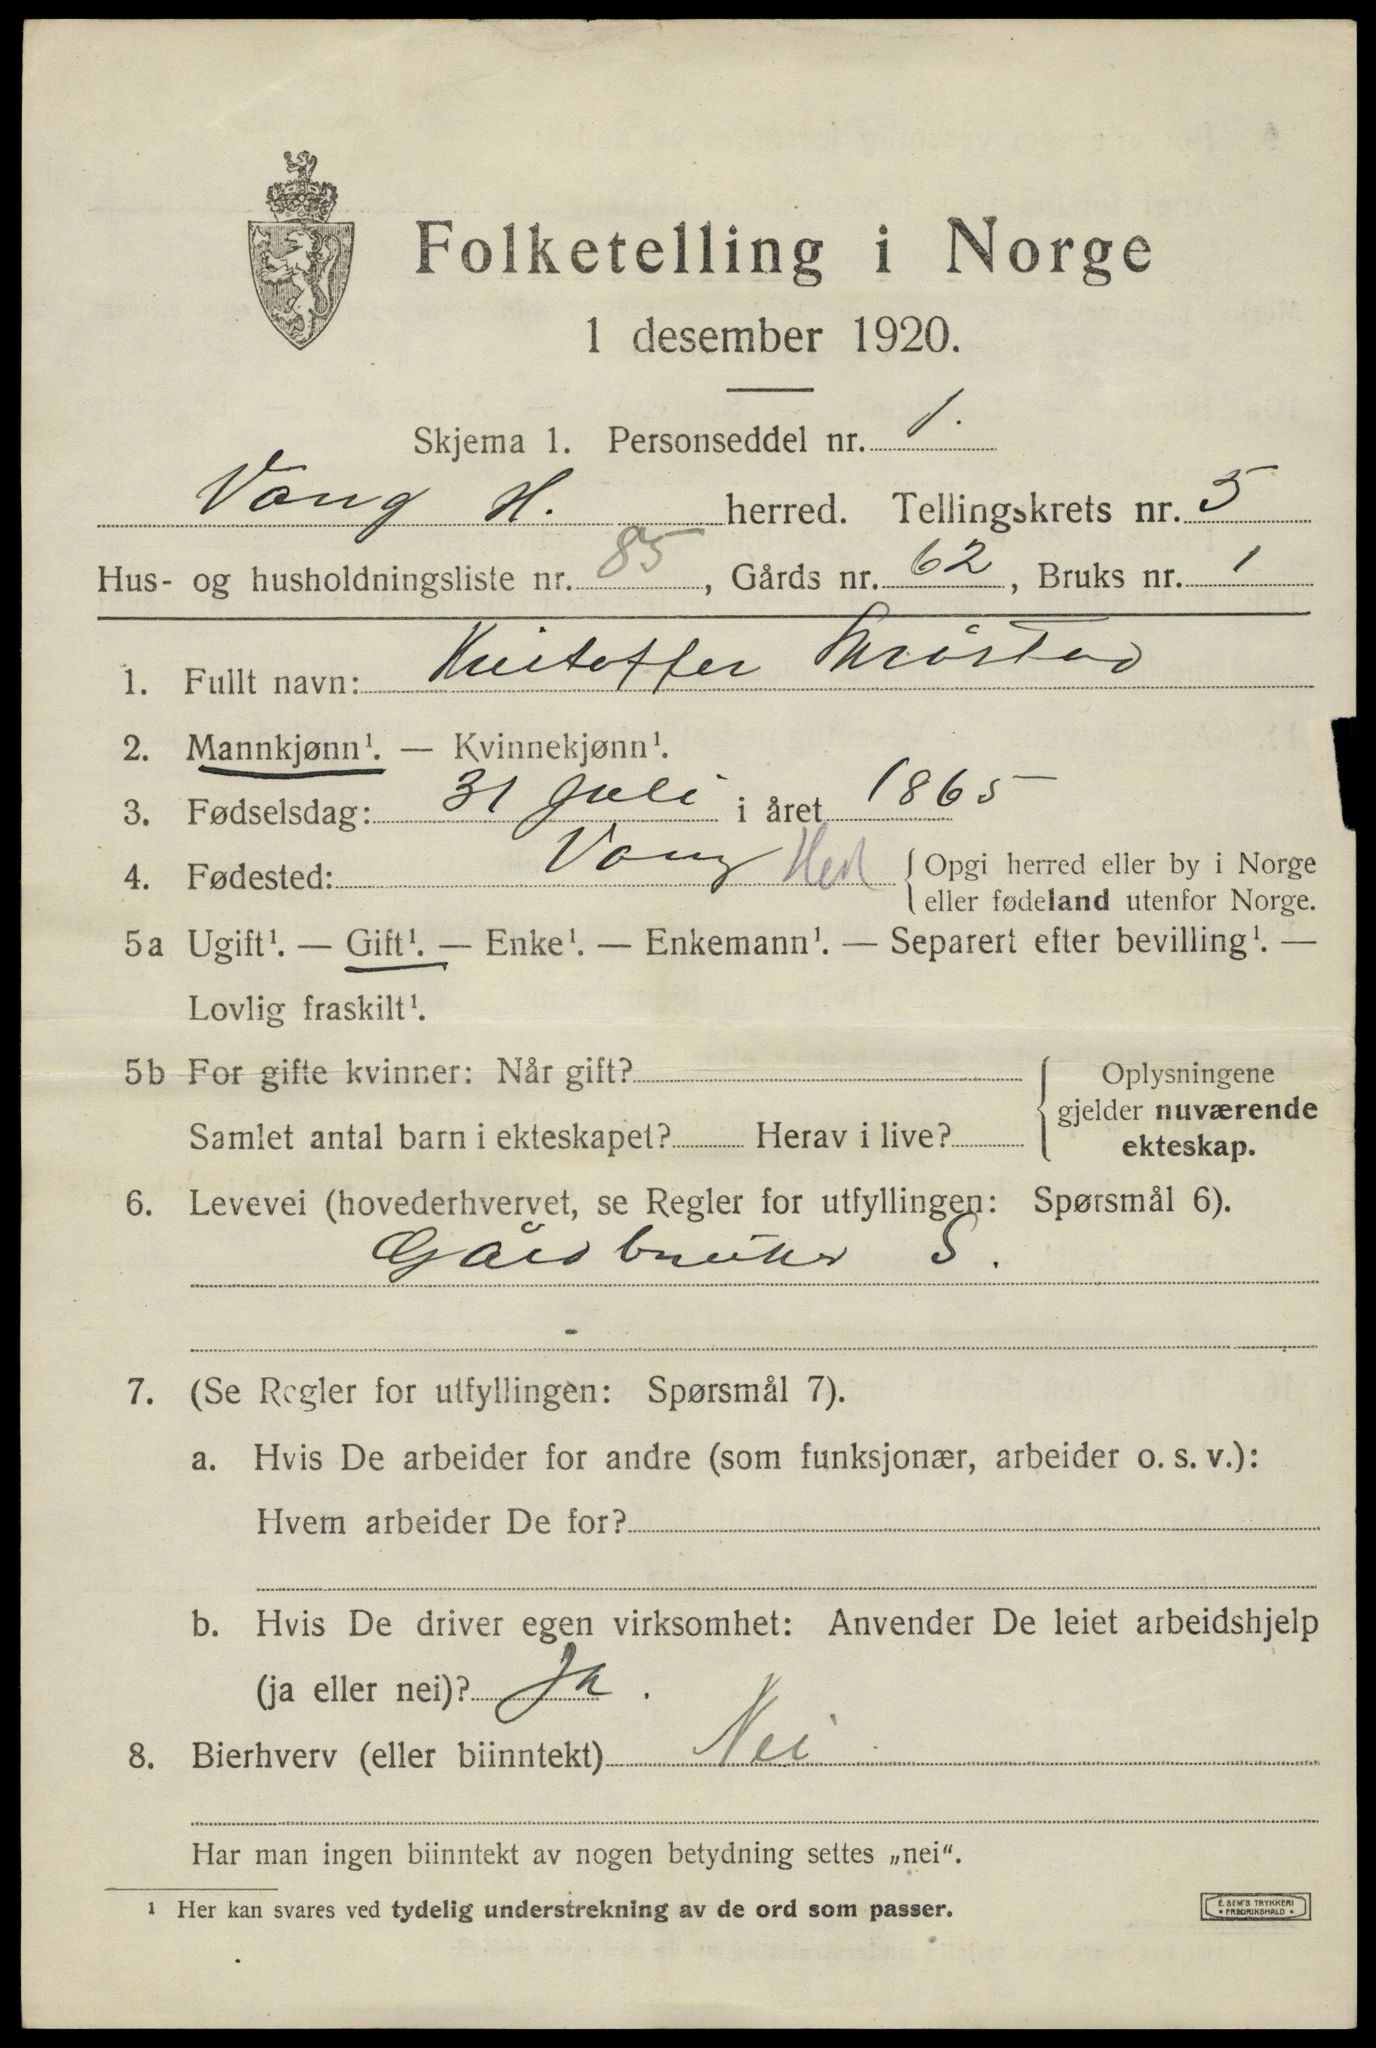 Folketelling i Norge
1 desember 1920.
Skjema 1. Personseddel nr. 1.
Vang H. herred. Tellingskrets nr. 5
Hus- og husholdningsliste nr. 85, Gårds nr. 62, Bruks nr. 1
1. Fullt navn: Kristoffer
2. Mannkjønn¹. — Kvinnekjønn¹.
3. Fødselsdag: 31 Juli i året 1865
4. Fødested: Vang Hed { Opgi herred eller by i Norge
eller fødeland utenfor Norge.
5a Ugift¹. — Gift¹. — Enke¹. — Enkemann¹. — Separert efter bevilling¹. —
Lovlig fraskilt¹.
5b For gifte kvinner: Når gift?
Samlet antal barn i ekteskapet? Herav i live?
Oplysningene
gjelder nuværende
ekteskap.
6. Levevei (hovederhvervet, se Regler for utfyllingen: Spørsmål 6).
Gårdbruker S.
7. (Se Regler for utfyllingen: Spørsmål 7).
a. Hvis De arbeider for andre (som funksjonær, arbeider o. s. v.):
Hvem arbeider De for?
b. Hvis De driver egen virksomhet: Anvender De leiet arbeidshjelp
(ja eller nei)? Ja.
8. Bierhverv (eller biinntekt) Nei
Har man ingen biinntekt av nogen betydning settes „nei“.
¹ Her kan svares ved tydelig understrekning av de ord som passer.
E. SEM'S TRYKKERI
• FREDRIKSHALD •